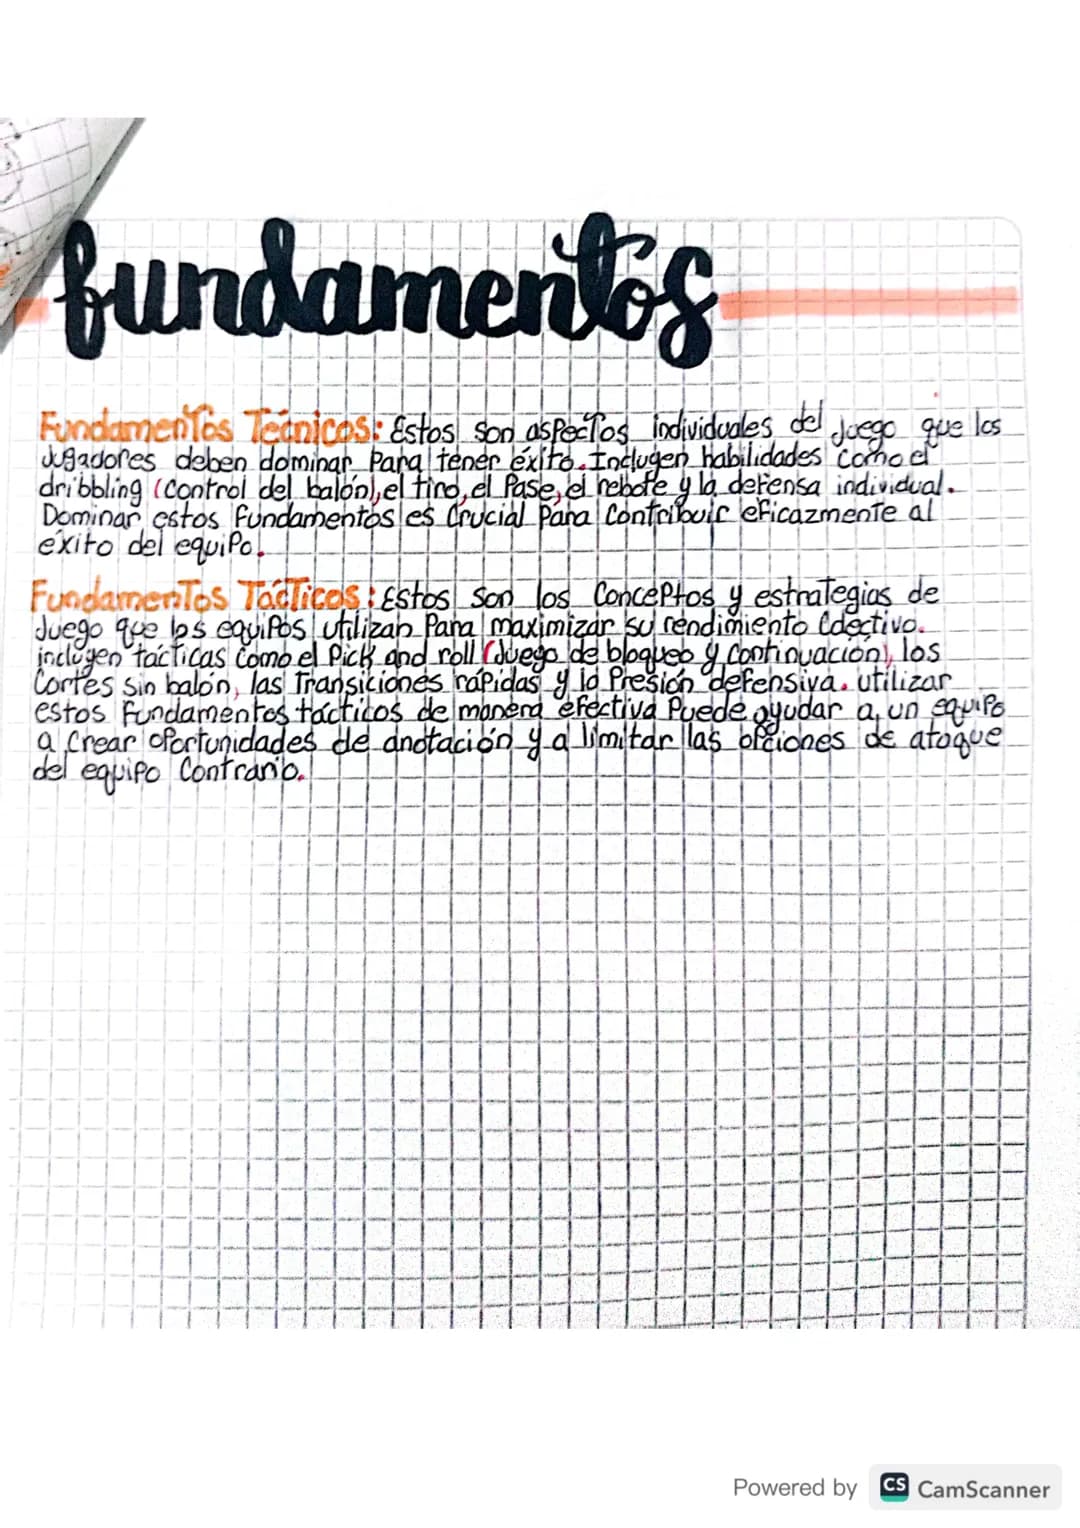 fundamentos
Fundamentos Técnicos: Estos son aspectos individuales del juego que los
Jugadores deben dominar Para tener éxito. Incluyen habilidades como el
dribbling (control del balón), el tiro, el Pase, el rebote y la defensa individual.
Dominar estos fundamentos es crucial Para Contribuir eficazmente al
éxito del equipo.
Fundamentos Tácticos: Estos son los Conceptos y estrategias de
Juego que los equipos utilizan Para maximizar su rendimiento Colectivo.
incluyen tácticas como el Pick and roll (Juego de bloqueo y continuación), los
Cortes sin balón, las Transiciones rápidas y la Presión defensiva. utilizar
estos fundamentos tácticos de manera efectiva Puede ayudar a un equipo
a crear oportunidades de anotación y a limitar las opciones de ataque
del equipo Contrario.
Powered by CS CamScanner